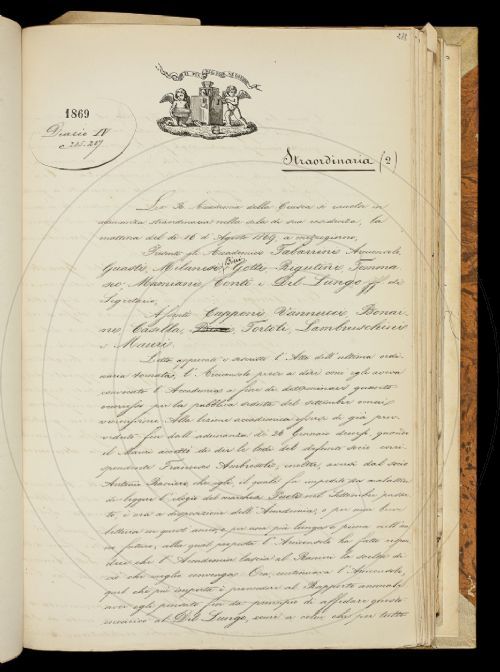 211
IL PIÙ BEL FIOR NE COGLIE
1869
Diario IV
c. 205. 207
Straordinaria (2)
La R. Accademia della Crusca si raccolse in
adunanza straordinaria nella sala di sua residenza, la
mattina del dì 16 d'Agosto 1869, a mezzogiorno,
Presenti gli Accademici Tabarrini Arciconsolo,
Guasti, Milanesi, Bini, Gotti, Rigutini, Tomma-
seo, Mamiani, Conti e Del Lungo ff. di
Segretario,
Assenti Capponi Vannucci, Bonai-
ni, Casella, Tortoli, Lambruschini
e Mauri.
Letto approvato e scritto l'Atto dell'ultima ordi-
naria tornata, l'Arciconsolo prese a dire come egli aveva
convocato l'Accademia a fine di determinare quanto
occorresse per la pubblica adunata del settembre omai
vicinissima. Alla lezione accademica essersi già prov-
veduto fin dall'adunanza de' 26 Gennaio decorso, quando
il Mauri accettò di dir le lodi del defunto socio corri-
spondente Francesco Ambrosoli; inoltre, aversi dal socio
Antonio Ranieri che egli, il quale fu impedito da malattia
di leggere l'elogio del marchese Puoti nel Settembre passa-
to, è ora a disposizione dell'Accademia, o per una breve
lettura in quest'anno, o per una più lunga e piena nell'an-
no futuro; alla qual proposta l'Arciconsolo ha fatto rispon-
dere che l'Accademia lascia al Ranieri la scelta di
ciò che meglio convenga. Ora, continuava l'Arciconsolo,
quel che più importa è provvedere al Rapporto annuale
aver egli pensato fin da principio di affidare questo
incarico al Del Lungo, come a colui che per tutto